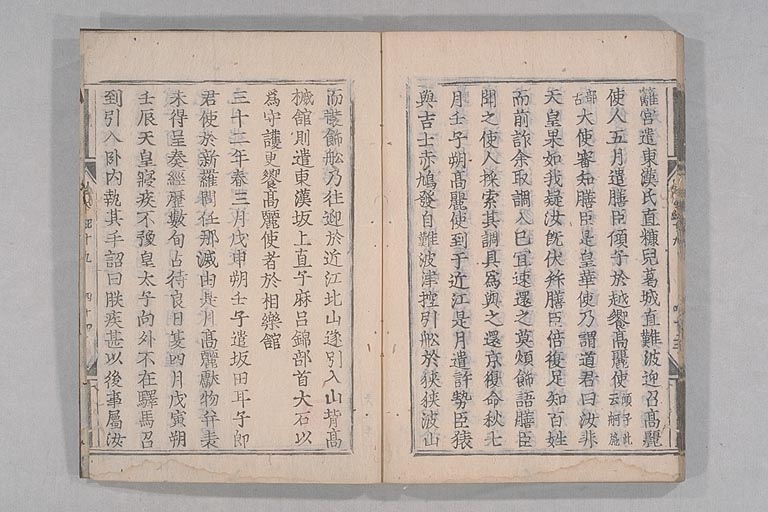 離宮遣東漢氏直糠兒葛城直難波迎召高麗
使人五月遣膳臣傾子於越饗高麗使傾子此云舸陀
部古大使審知膳臣是皇華使乃謂道君曰汝非
天皇果如我疑汝既伏拜膳臣倍復足知百姓
而前詐余取調入己宜速還之莫煩飾語膳臣
聞之使人探索其調具爲與之還京復命秋七
月壬子朔高麗使到于近江是月遣許勢臣猿
與吉士赤鳩發自難波津控引舩於狹狹波山
而裝飾舩乃往迎於近江北山遂引入山背高
槭館則遣東漢坂上直子麻呂錦部首大石以
爲守護更饗高麗使者於相樂館
三十二年春三月戊申朔壬子遣坂田耳子郎
君使於新羅問任那滅由是月高麗獻物幷表
未得呈奏經歷數旬占待良日夏四月戊寅朔
壬辰天皇寢疾不豫皇太子向外不在驛馬召
到引入卧内執其手詔曰朕疾甚以後事屬汝